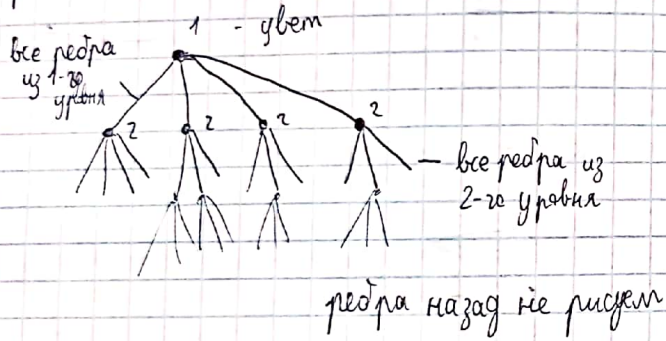 1 - цвет
все ребра
из 1-го
уровня
2 2 2 2
все ребра из
2-го уровня
ребра назад не рисуем